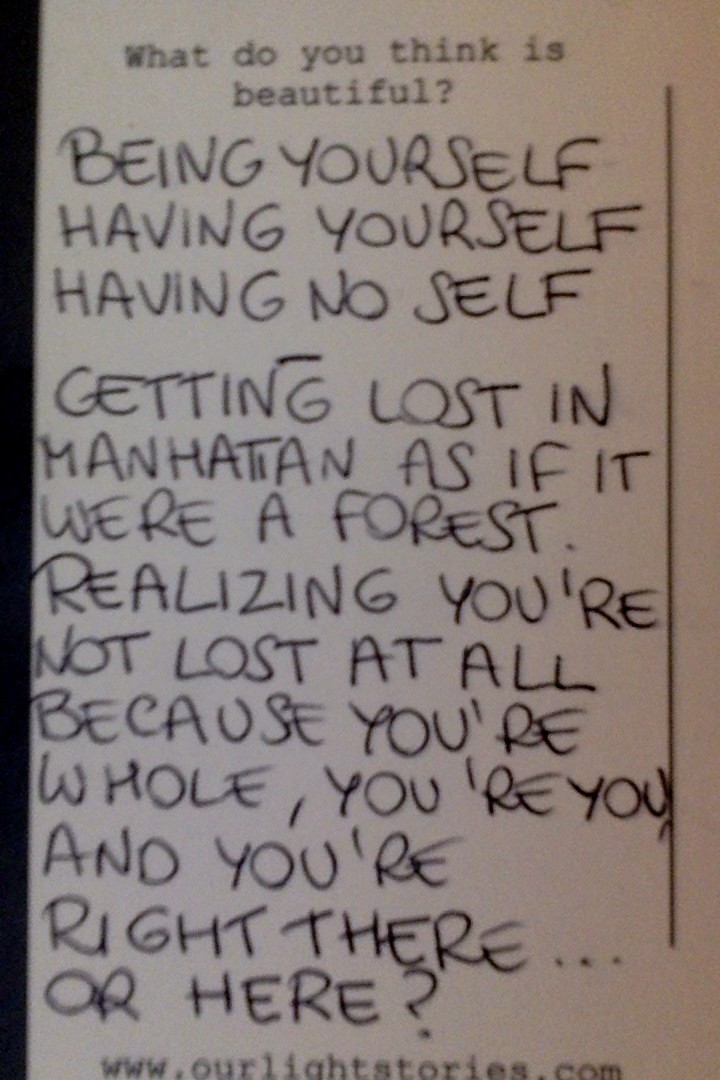 What do you think is
beautiful?
BEING YOURSELF
HAVING YOURSELF
HAVING NO SELF
GETTING LOST IN
MANHATTAN AS IF IT
WERE A FOREST.
REALIZING YOU'RE
NOT LOST AT ALL
BECAUSE YOU'RE
WHOLE, YOU'RE YOU,
AND YOU'RE
RIGHT THERE...
OR HERE?
www.ourlightstories.com